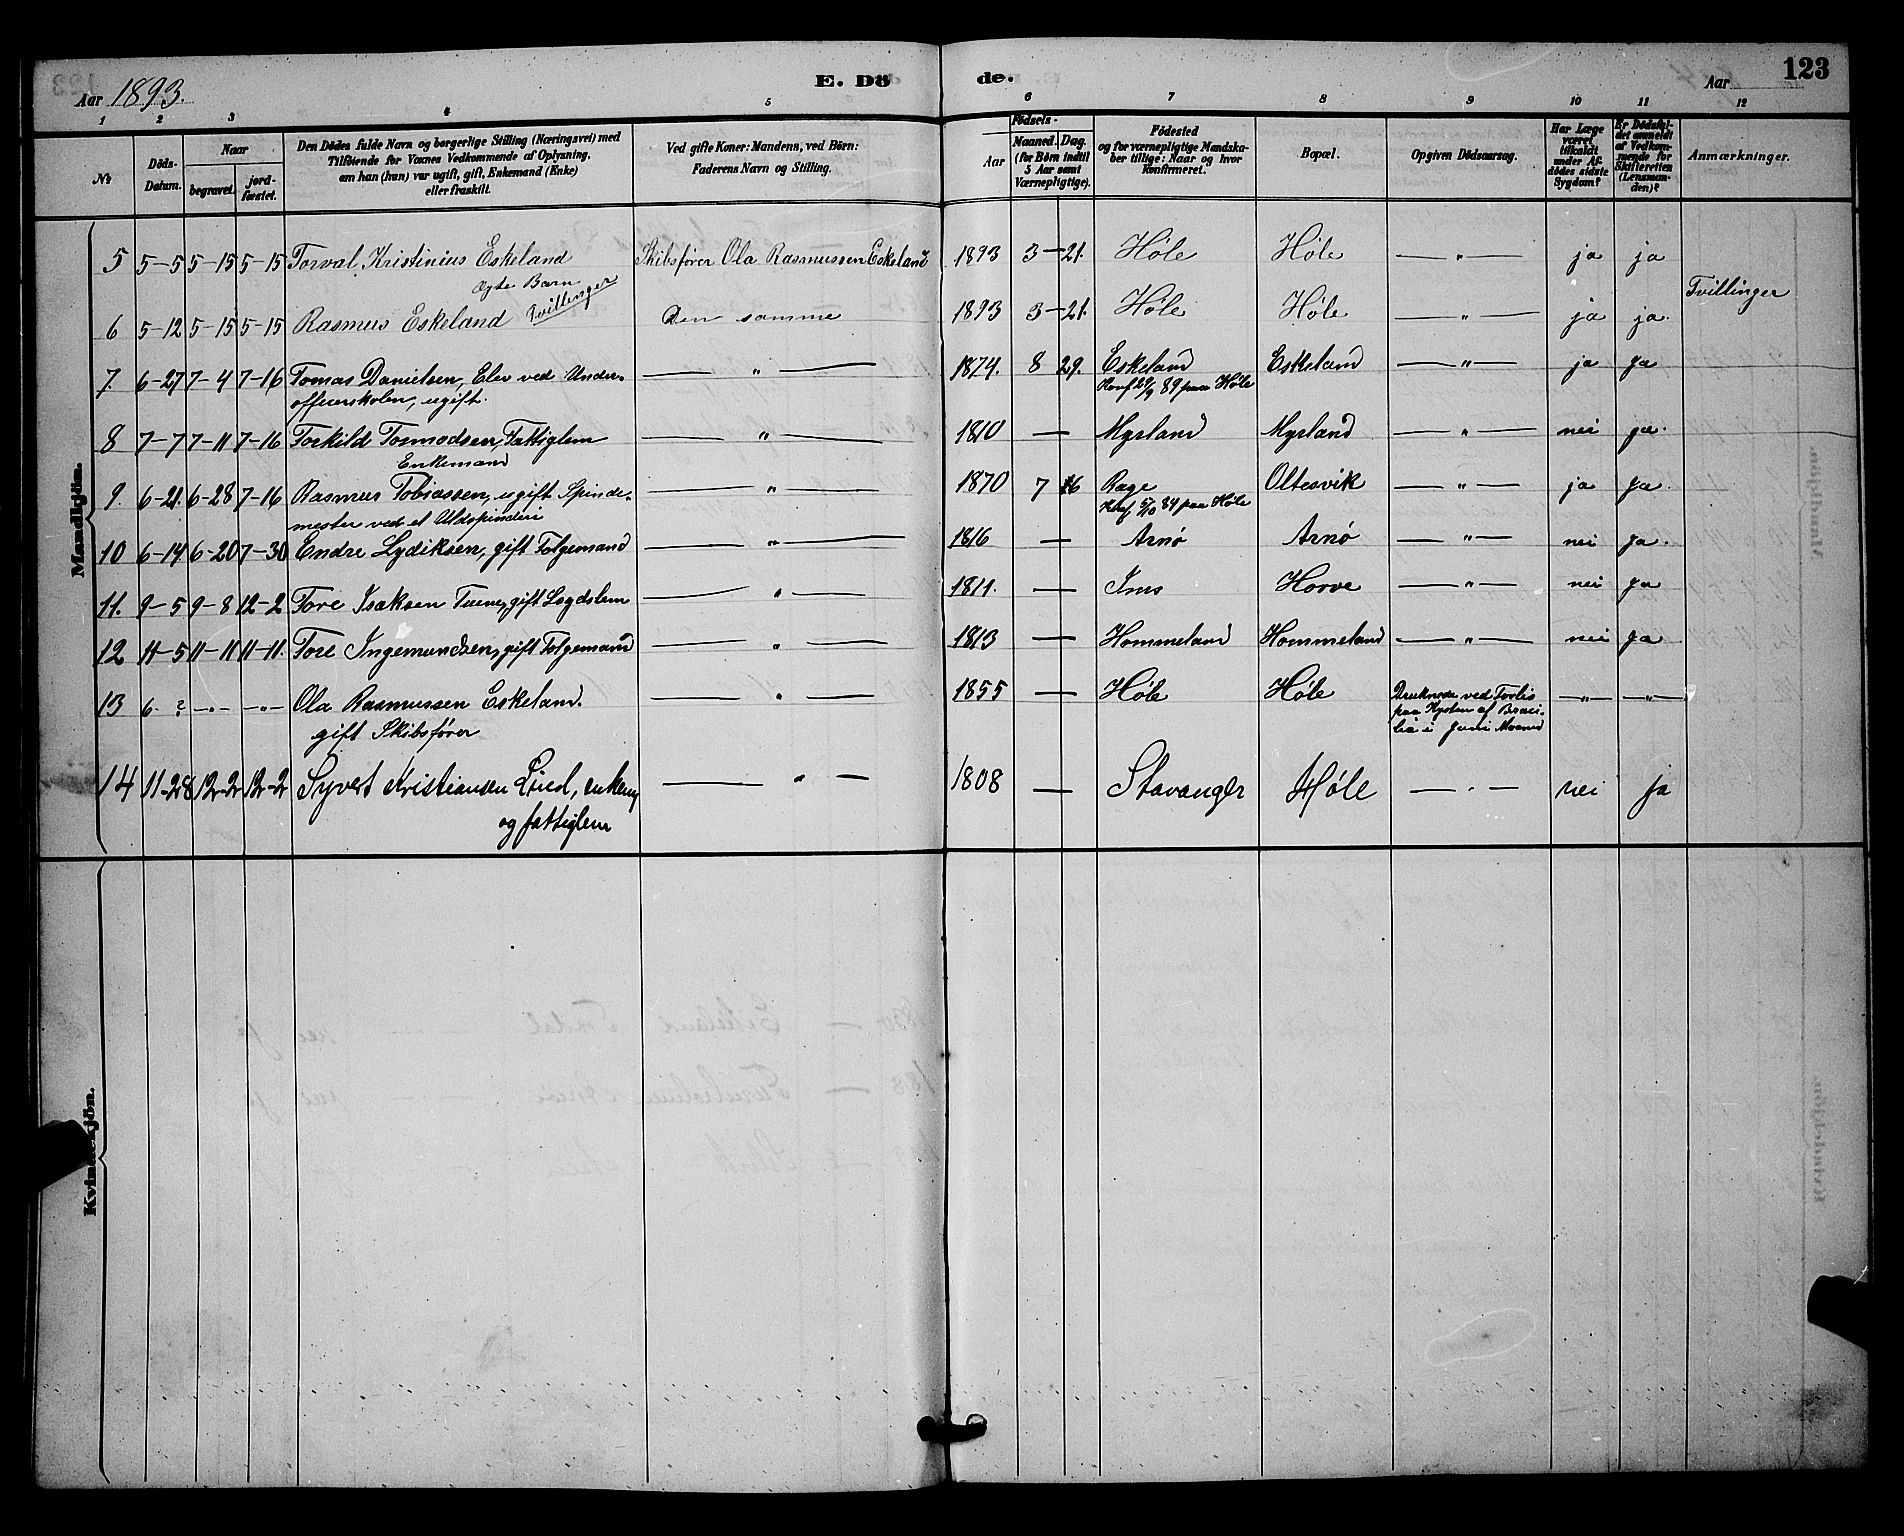 Aar 1893. E. Dö de. Aar 123
1 2 3 4 5 6 7 8 9 10 11 12
№ Döds-Datum. Naar begravet. jord-fæstet. Den Dödes fulde Navn og borgerlige Stilling (Næringsvei) med Tilföiende for Voxnes Vedkommende af Oplysning, om han (hun) var ugift, gift, Enkemand (Enke) eller fraskilt. Ved gifte Koner: Mandens, ved Börn: Faderens Navn og Stilling. Aar Födsels- Maaned. Dag. (for Börn indtil 5 Aar samt Værnepligtige). Födested og for værnepligtige Mandska-ber tillige: Naar og hvor Konfirmeret. Bopæl. Opgiven Dödsaarsag. Har Læge været tilkaldt under Af-dödes sidste Sygdom? Er Dödsfal-det anmeldt af Vedkom-mende for Skifteretten (Lensman-den)? Anmærkninger.
Mandkjön.
5 5-5 5-15 5-15 Torval Kristinius Eskeland Skibsfører Ola Rasmussen Eskeland 1893 3-21. Høle Høle — " — ja ja
Ægte Barn
Tvillinger
Tvillinger
6 5-12 5-15 5-15 Rasmus Eskeland Den samme 1893 3-21. Høle Høle — " — ja ja.
7. 6-27 7-4 7-16 Tomas Danielsen, Elev ved Under- — " — 1874. 8 29. Eskeland Eskeland — " — ja ja
officerskolen, ugift. Konf 29/9 89 paa Høle
8 7-7 7-11 7-16 Torkild Tormodsen, Fattiglem — " — 1810 — Myrland Myrland — " — nei ja.
Enkemand
9. 6-21. 6-28 7-16 Rasmus Tobiassen, ugift Spinde- — " — 1870 7 16 Rage Oltesvik — " — ja ja.
mester ved et Uldspinderi Konf 5/10 84 paa Høle
10 6-14 6-20 7-30 Endre Lydiksen, gift Folgemand — " — 1816 — Arnø Arnø — " — nei ja.
11. 9-5 9-8 12-2 Tore Isaksen Tuene, gift Lægdslem — " — 1811. — Ims Horve — " — nei ja
12 11-5 11-11 11-11. Tore Ingemundsen, gift Folgemand — " — 1813 — Hommeland Hommeland — " — nei ja
13 6-? -"- -"- Ola Rasmussen Eskeland. — " — 1855 — Høle Høle Druknede ved Forlis — " — — " —
gift Skibsfører paa Kysten af Brasi-
lia i Juni Maaned
14 11-28 12-2 12-2 Syvert Kristiansen Lied, enkem, — " — 1808 — Stavanger Høle — " — nei ja
og fattiglem
Kvindekjön.